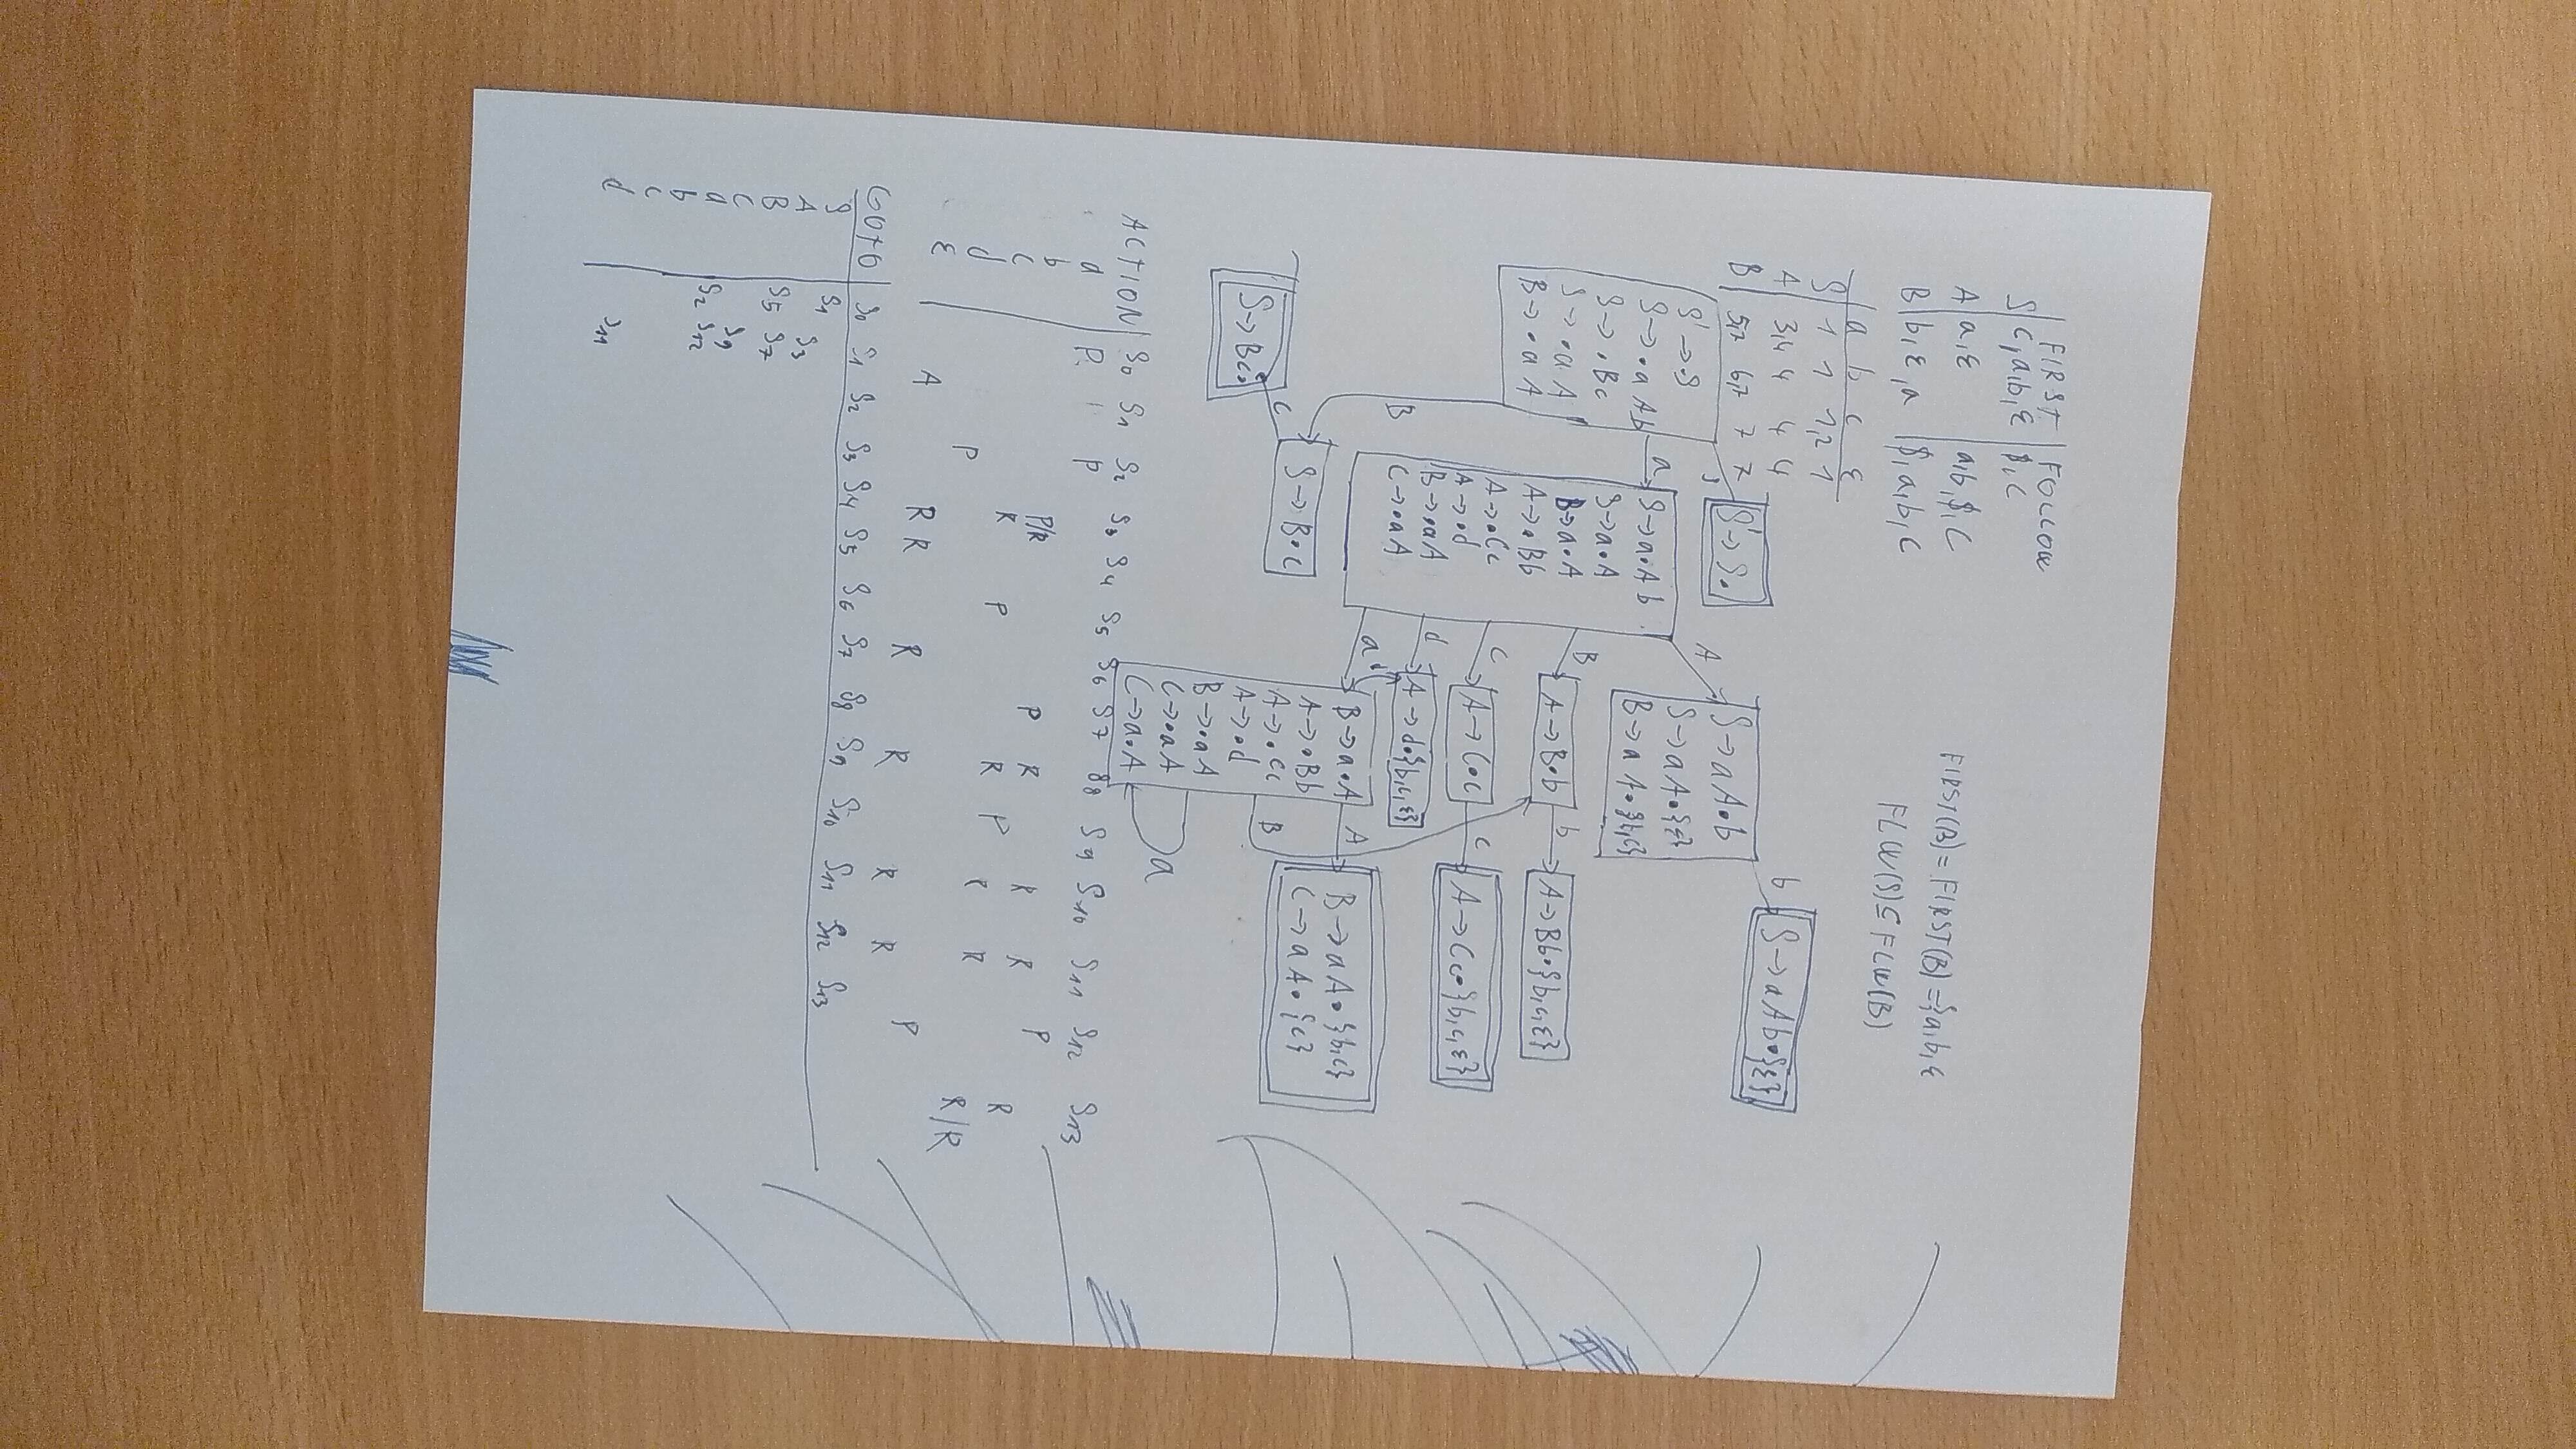 FIRST FOLLOW
S c,a,b,ε $,c
A a,ε a,b,$,c
B b,ε,a $,a,b,c
FIRST(B)=FIRST(B)={a,b,ε
FLW(S)⊆FLW(B)
a b c ε
S 1 1 1,2 1
A 3,4 4 4 4
B 5,7 6,7 7 7
S'→.S
S→.aAb
S→.Bc
S→.aA
B→.aA
S
S'→S.
a
S→a.Ab
S→a.A
B→a.A
A→.Bb
A→.Cc
A→.d
B→.aA
C→.aA
A
S→aA.b
S→aA.{ε}
B→aA.{b,c}
b
S→aAb.{ε}
B
A→B.b
b
A→Bb.{b,c,ε}
C
A→C.c
c
A→Cc.{b,c,ε}
d
A→d.{b,c,ε}
a
B→a.A
A→.Bb
A→.Cc
A→.d
B→.aA
C→.aA
C→a.A
A
B→aA.{b,c}
C→aA.{c}
B
a
d
B
S→B.c
c
S→Bc.
ACTION S0 S1 S2 S3 S4 S5 S6 S7 S8 S9 S10 S11 S12 S13
a P P
b P/R P R R R P
c R P R P R R R
d P R/R
ε A R R R R R R P
GOTO S0 S1 S2 S3 S4 S5 S6 S7 S8 S9 S10 S11 S12 S13
S S1
A S3
B S5 S7
C S9
a S2 S12
b
c
d S11